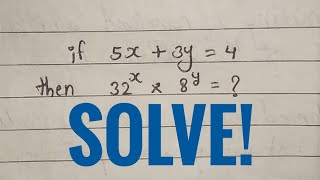 if 5x + 3y = 4
then 32^x × 8^y = ?
SOLVE!